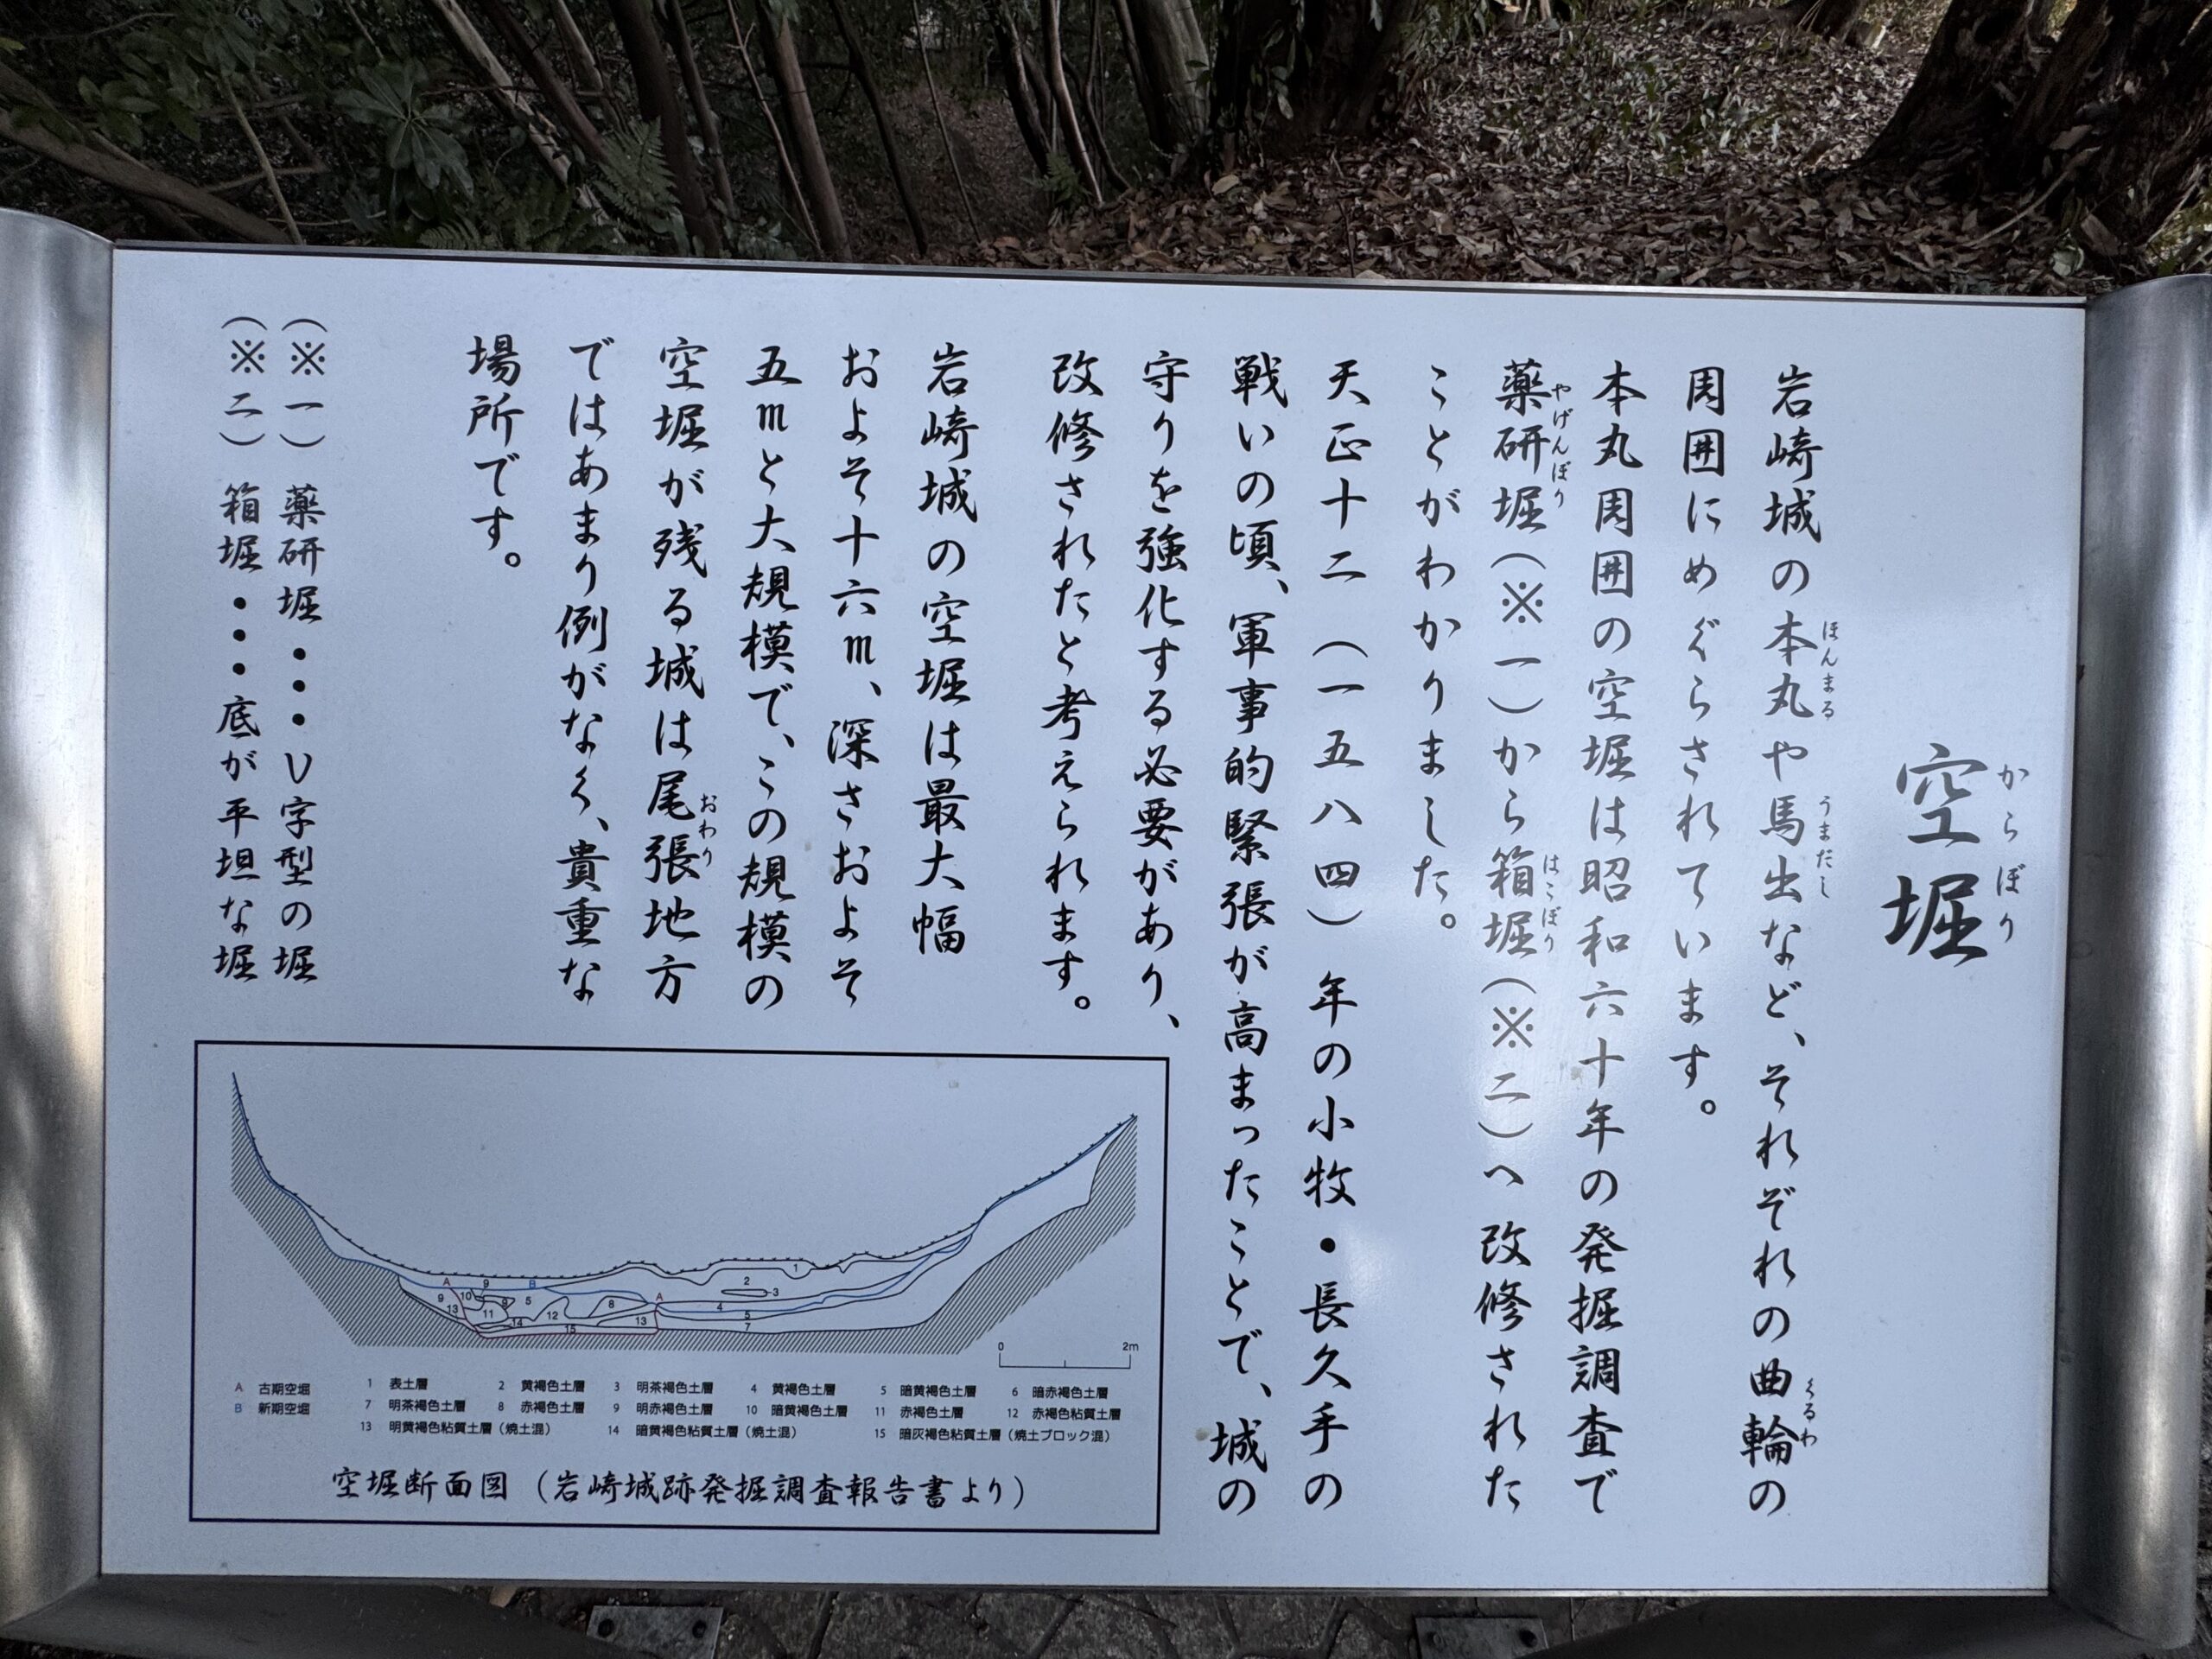 空堀
からぼり
岩崎城の本丸や馬出など、それぞれの曲輪の
ほんまる
うまだし
くるわ
周囲にめぐらされています。
本丸周囲の空堀は昭和六十年の発掘調査で
薬研堀(※一)から箱堀(※二)へ改修された
やげんぼり
はこぼり
ことがわかりました。
天正十二(一五八四)年の小牧・長久手の
戦いの頃、軍事的緊張が高まったことで、城の
守りを強化する必要があり、
改修されたと考えられます。
岩崎城の空堀は最大幅
およそ十六m、深さおよそ
五mと大規模で、この規模の
空堀が残る城は尾張地方
おわり
ではあまり例がなく、貴重な
場所です。
(※一)薬研堀・・・V字型の堀
(※二)箱堀・・・底が平坦な堀
A 9 B
9 10 9 5 8 A 2 1 3
13 11 12 4
14 13 5
15 7
0 2m
A 古期空堀
B 新期空堀
1 表土層 2 黄褐色土層 3 明茶褐色土層 4 黄褐色土層 5 暗黄褐色土層 6 暗赤褐色土層
7 明茶褐色土層 8 赤褐色土層 9 明赤褐色土層 10 暗黄褐色土層 11 赤褐色土層 12 赤褐色粘質土層
13 明黄褐色粘質土層(焼土混) 14 暗黄褐色粘質土層(焼土混) 15 暗灰褐色粘質土層(焼土ブロック混)
空堀断面図(岩崎城跡発掘調査報告書より)